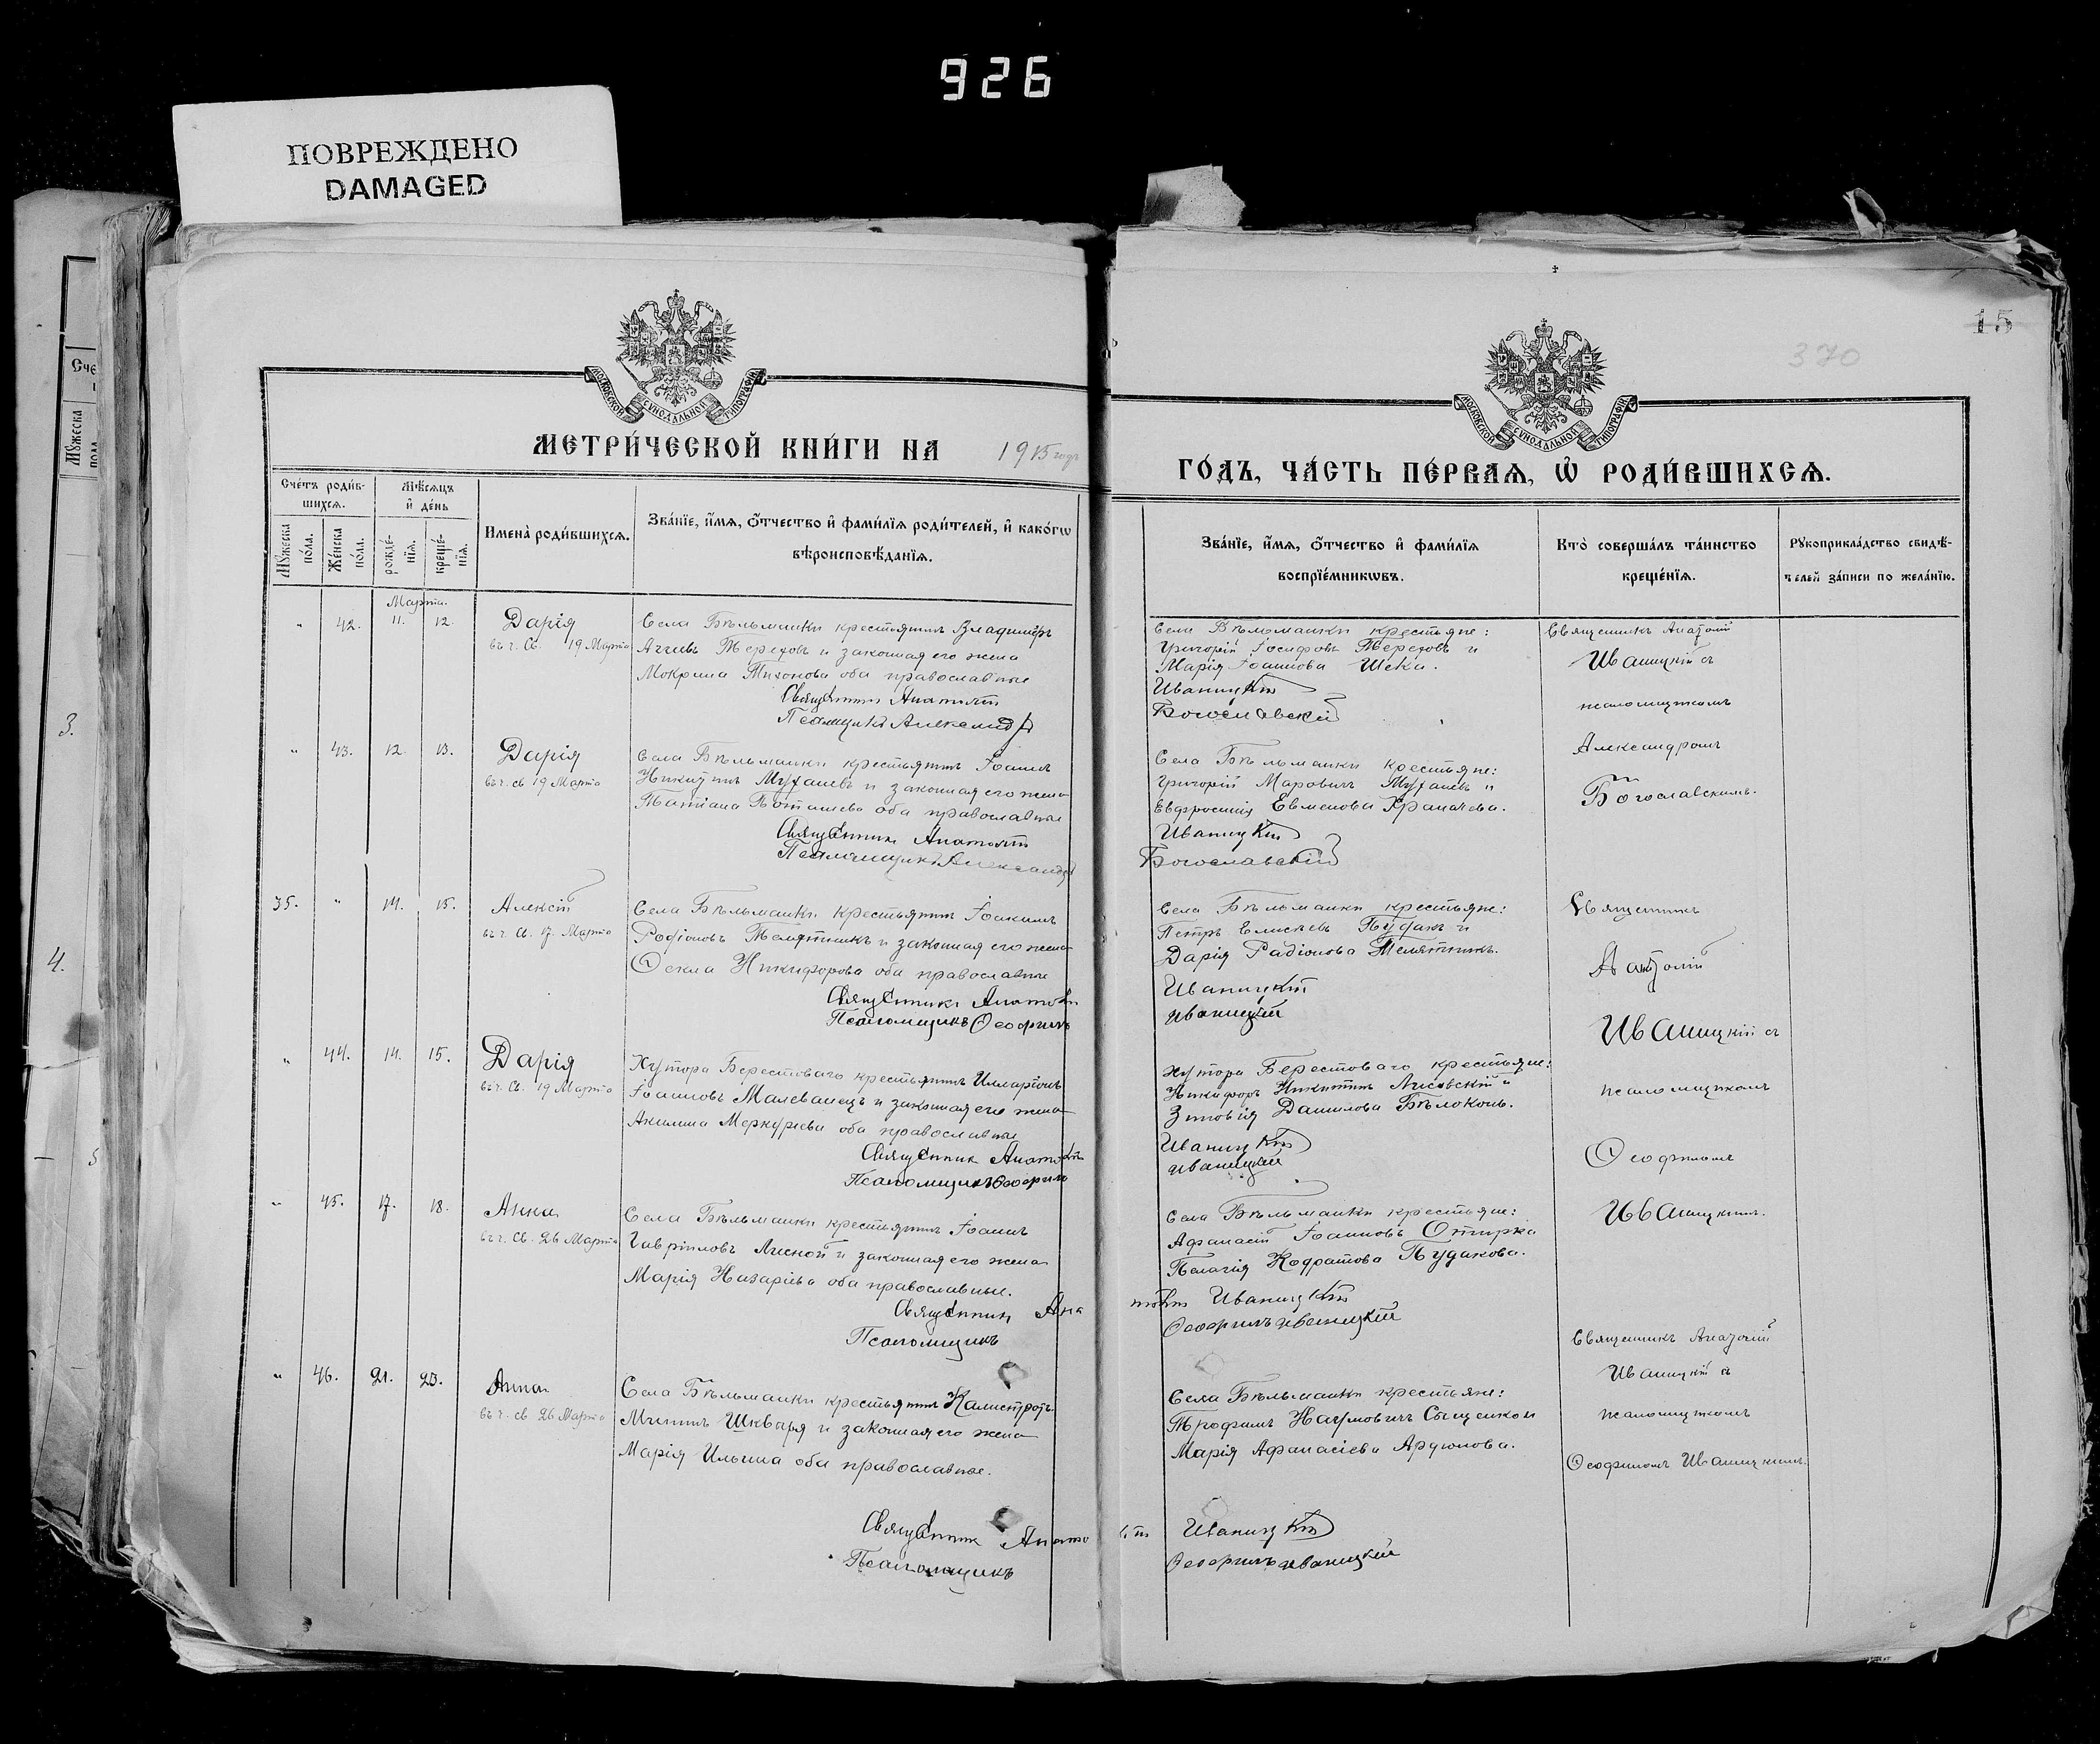 926
ПОВРЕЖДЕНО
DAMAGED
15
370
МОСКОВСКОЙ СѴНОДАЛЬНОЙ ТИПОГРАФІИ
МОСКОВСКОЙ СѴНОДАЛЬНОЙ ТИПОГРАФІИ
МЕТРИ́ЧЕСКОЙ КНИ́ГИ НА 1915 годъ
ГО́ДЪ, ЧА́СТЬ ПЕ́РВАѦ, Ѽ РОДИ́ВШИХСѦ.
Сче́тъ роди́в-
шихсѧ.
Мꙋ́жеска
по́ла.
Же́нска
по́ла.
Мѣ́сѧцъ
и҆ де́нь
рожде́-
нїѧ.
креще́-
нїѧ.
Имена̀ роди́вшихсѧ.
Зва́нїе, и҆́мѧ, ѻ҆́тчество и҆ фами́лїѧ роди́телей, и҆ како́гѡ
вѣроисповѣ́данїѧ.
Зва́нїе, и҆́мѧ, ѻ҆́тчество и҆ фами́лїѧ
воспрїе́мникѡвъ.
Кто̀ соверша́лъ та́инство
креще́нїѧ.
Рꙋкоприкла́дство свидѣ́-
телей за́писи по жела́нїю.
Марта.
" 42. 11. 12.
Дарія
въ ч. Св. 19 Марта
Села Бѣльманки крестьянинъ Владиміръ
Терехов и законная его жена
Мокрина Тихонова оба православные
Священникъ Анатолій
Псаломщикъ Александръ
Села Бѣльманки крестьяне:
Григорій Іосифовъ Тереховъ и
Марія Іоаннова Шека.
Иваницкій
Богославскій
Священникъ Анатолій
Иваницкій съ
псаломщикомъ
Александромъ
Богославскимъ.
" 43. 12. 13.
Дарія
въ ч. св 19 Марта
Села Бѣльманки крестьянинъ Іоаннъ
Никитинъ и законная его жена
Татіана оба православные
Священникъ Анатолій
Псаломщикъ Александръ
Села Бѣльманки крестьяне:
Григорій
Евфросинія Евменова
Иваницкій
Богославскій
35. " 14. 15.
Алексій
въ ч. Св. 17. Марта
Села Бѣльманки крестьянинъ Іоакимъ
Родіоновъ Телятникъ и законная его жена
Ѳекла Никифорова оба православные
Священникъ Анатолій
Псаломщикъ Ѳеофилъ
Села Бѣльманки крестьяне:
Петръ Елисѣевъ и
Дарія Радіонова Телятникъ.
Иваницкій
Иваницкій
Священникъ
Анатолій
Иваницкій съ
псаломщикомъ
Ѳеофиломъ
Иваницкимъ.
" 44. 14. 15.
Дарія
въ ч. Св. 19 Марта
Хутора Берестоваго крестьянинъ Илларіонъ
Іоанновъ Малеванецъ и законная его жена
Акилина Меркуріева оба православные
Священникъ Анатолій
Псаломщикъ Ѳеофилъ
Хутора Берестоваго крестьяне:
Никифоръ Никитинъ Лисовскій и
Зиновія Данилова Бѣлоконь.
Иваницкій
Иваницкій
" 45. 17. 18.
Анна
въ ч. Св. 26 Марта
Села Бѣльманки крестьянинъ Іоаннъ
Гавріиловъ Лисной и законная его жена
Марія Назаріева оба православные.
Священникъ Анатолій Иваницкій
Псаломщикъ Ѳеофилъ Иваницкій
Села Бѣльманки крестьяне:
Афанасій Іоанновъ Отирка
Пелагія Кодратова Пудакова.
" 46. 21. 23.
Анна
въ ч. св 26 Марта
Села Бѣльманки крестьянинъ Калистратъ
Шкваря и законная его жена
Марія Ильина оба православные.
Священникъ Анатолій Иваницкій
Псаломщикъ Ѳеофилъ Иваницкій
Села Бѣльманки крестьяне:
Трофимъ Наумовичъ
Марія Афанасіева
Священникъ Анатолій
Иваницкій съ
псаломщикомъ
Ѳеофиломъ Иваницкимъ.